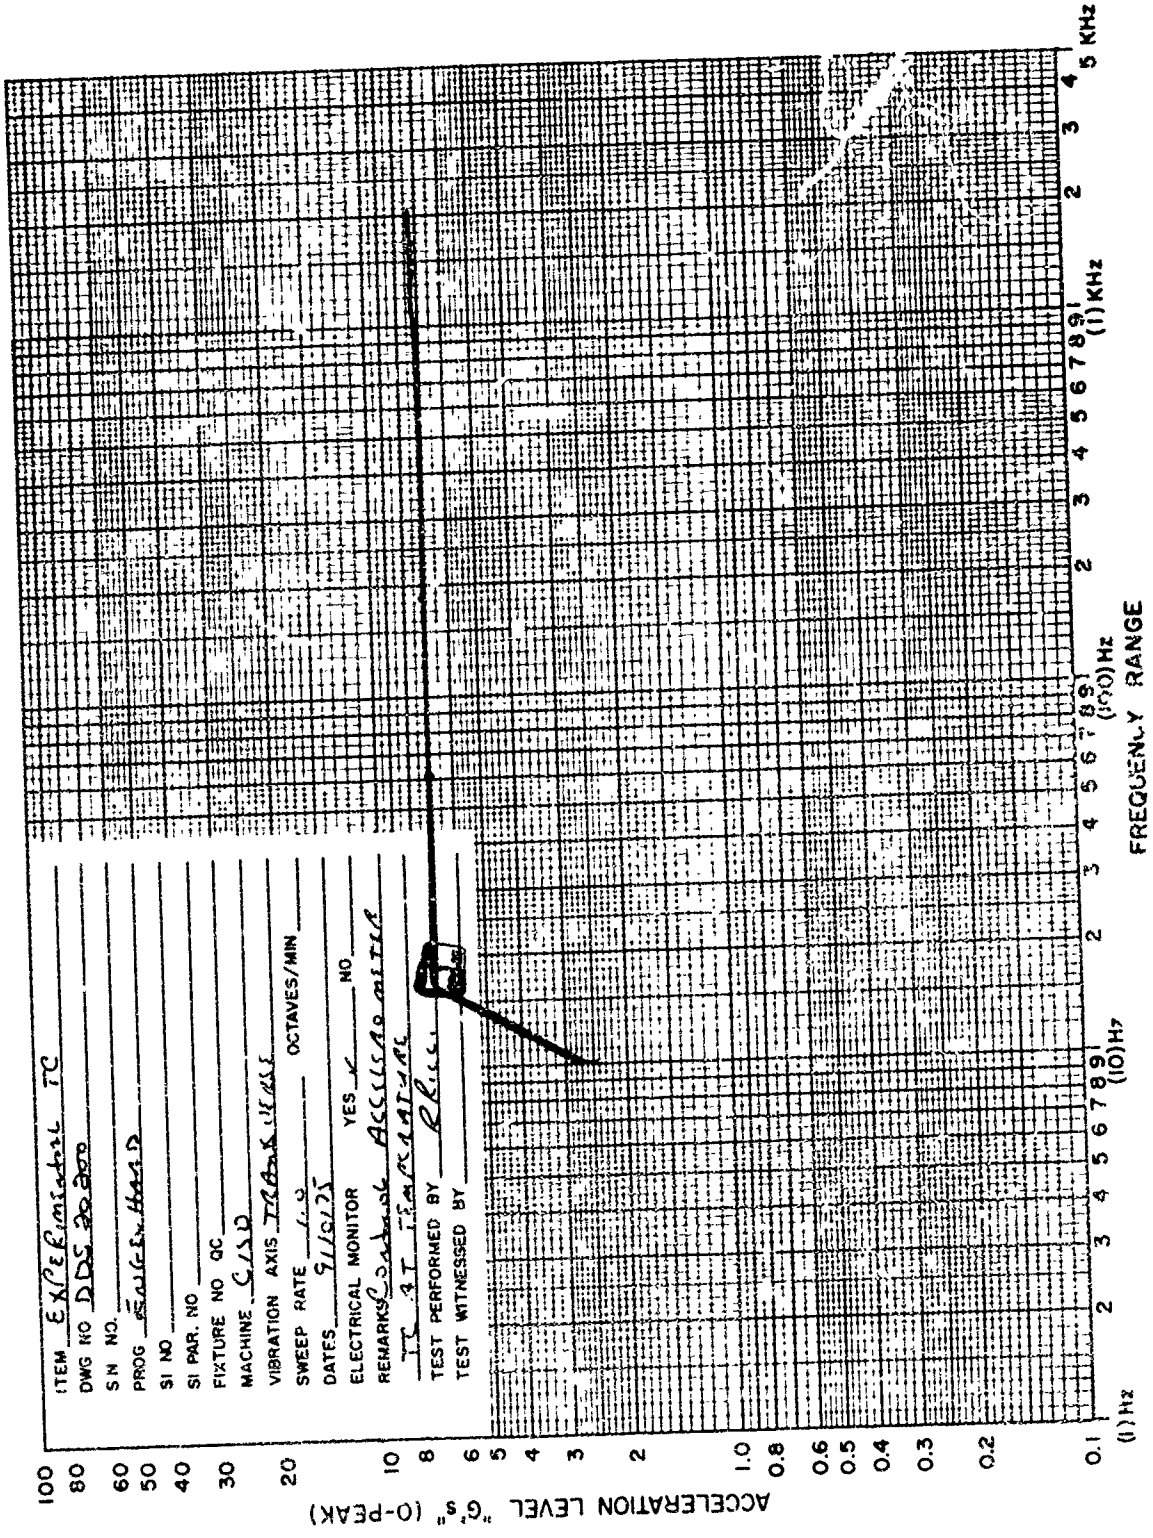 ITEM EXPERimental TC
DWG NO DDS 20200
S N NO.
PROG ENGELHARD
SI NO
SI PAR. NO
FIXTURE NO QC
MACHINE C150
VIBRATION AXIS TRANSVERSE
SWEEP RATE 1.0 OCTAVES/MIN
DATES 9/10/75
ELECTRICAL MONITOR YES ✓ NO
REMARKS Control ACCELEROMETER
TC AT TEMPERATURE
TEST PERFORMED BY
TEST WITNESSED BY
ACCELERATION LEVEL "G's" (O-PEAK)
100
80
60
50
40
30
20
10
8
6
5
4
3
2
1.0
0.8
0.6
0.5
0.4
0.3
0.2
0.1
(1) Hz 2 3 4 5 6 7 8 9 1 (10) Hz 2 3 4 5 6 7 8 9 1 (100) Hz 2 3 4 5 6 7 8 9 1 (1) KHz 2 3 4 5 KHz
FREQUENCY RANGE